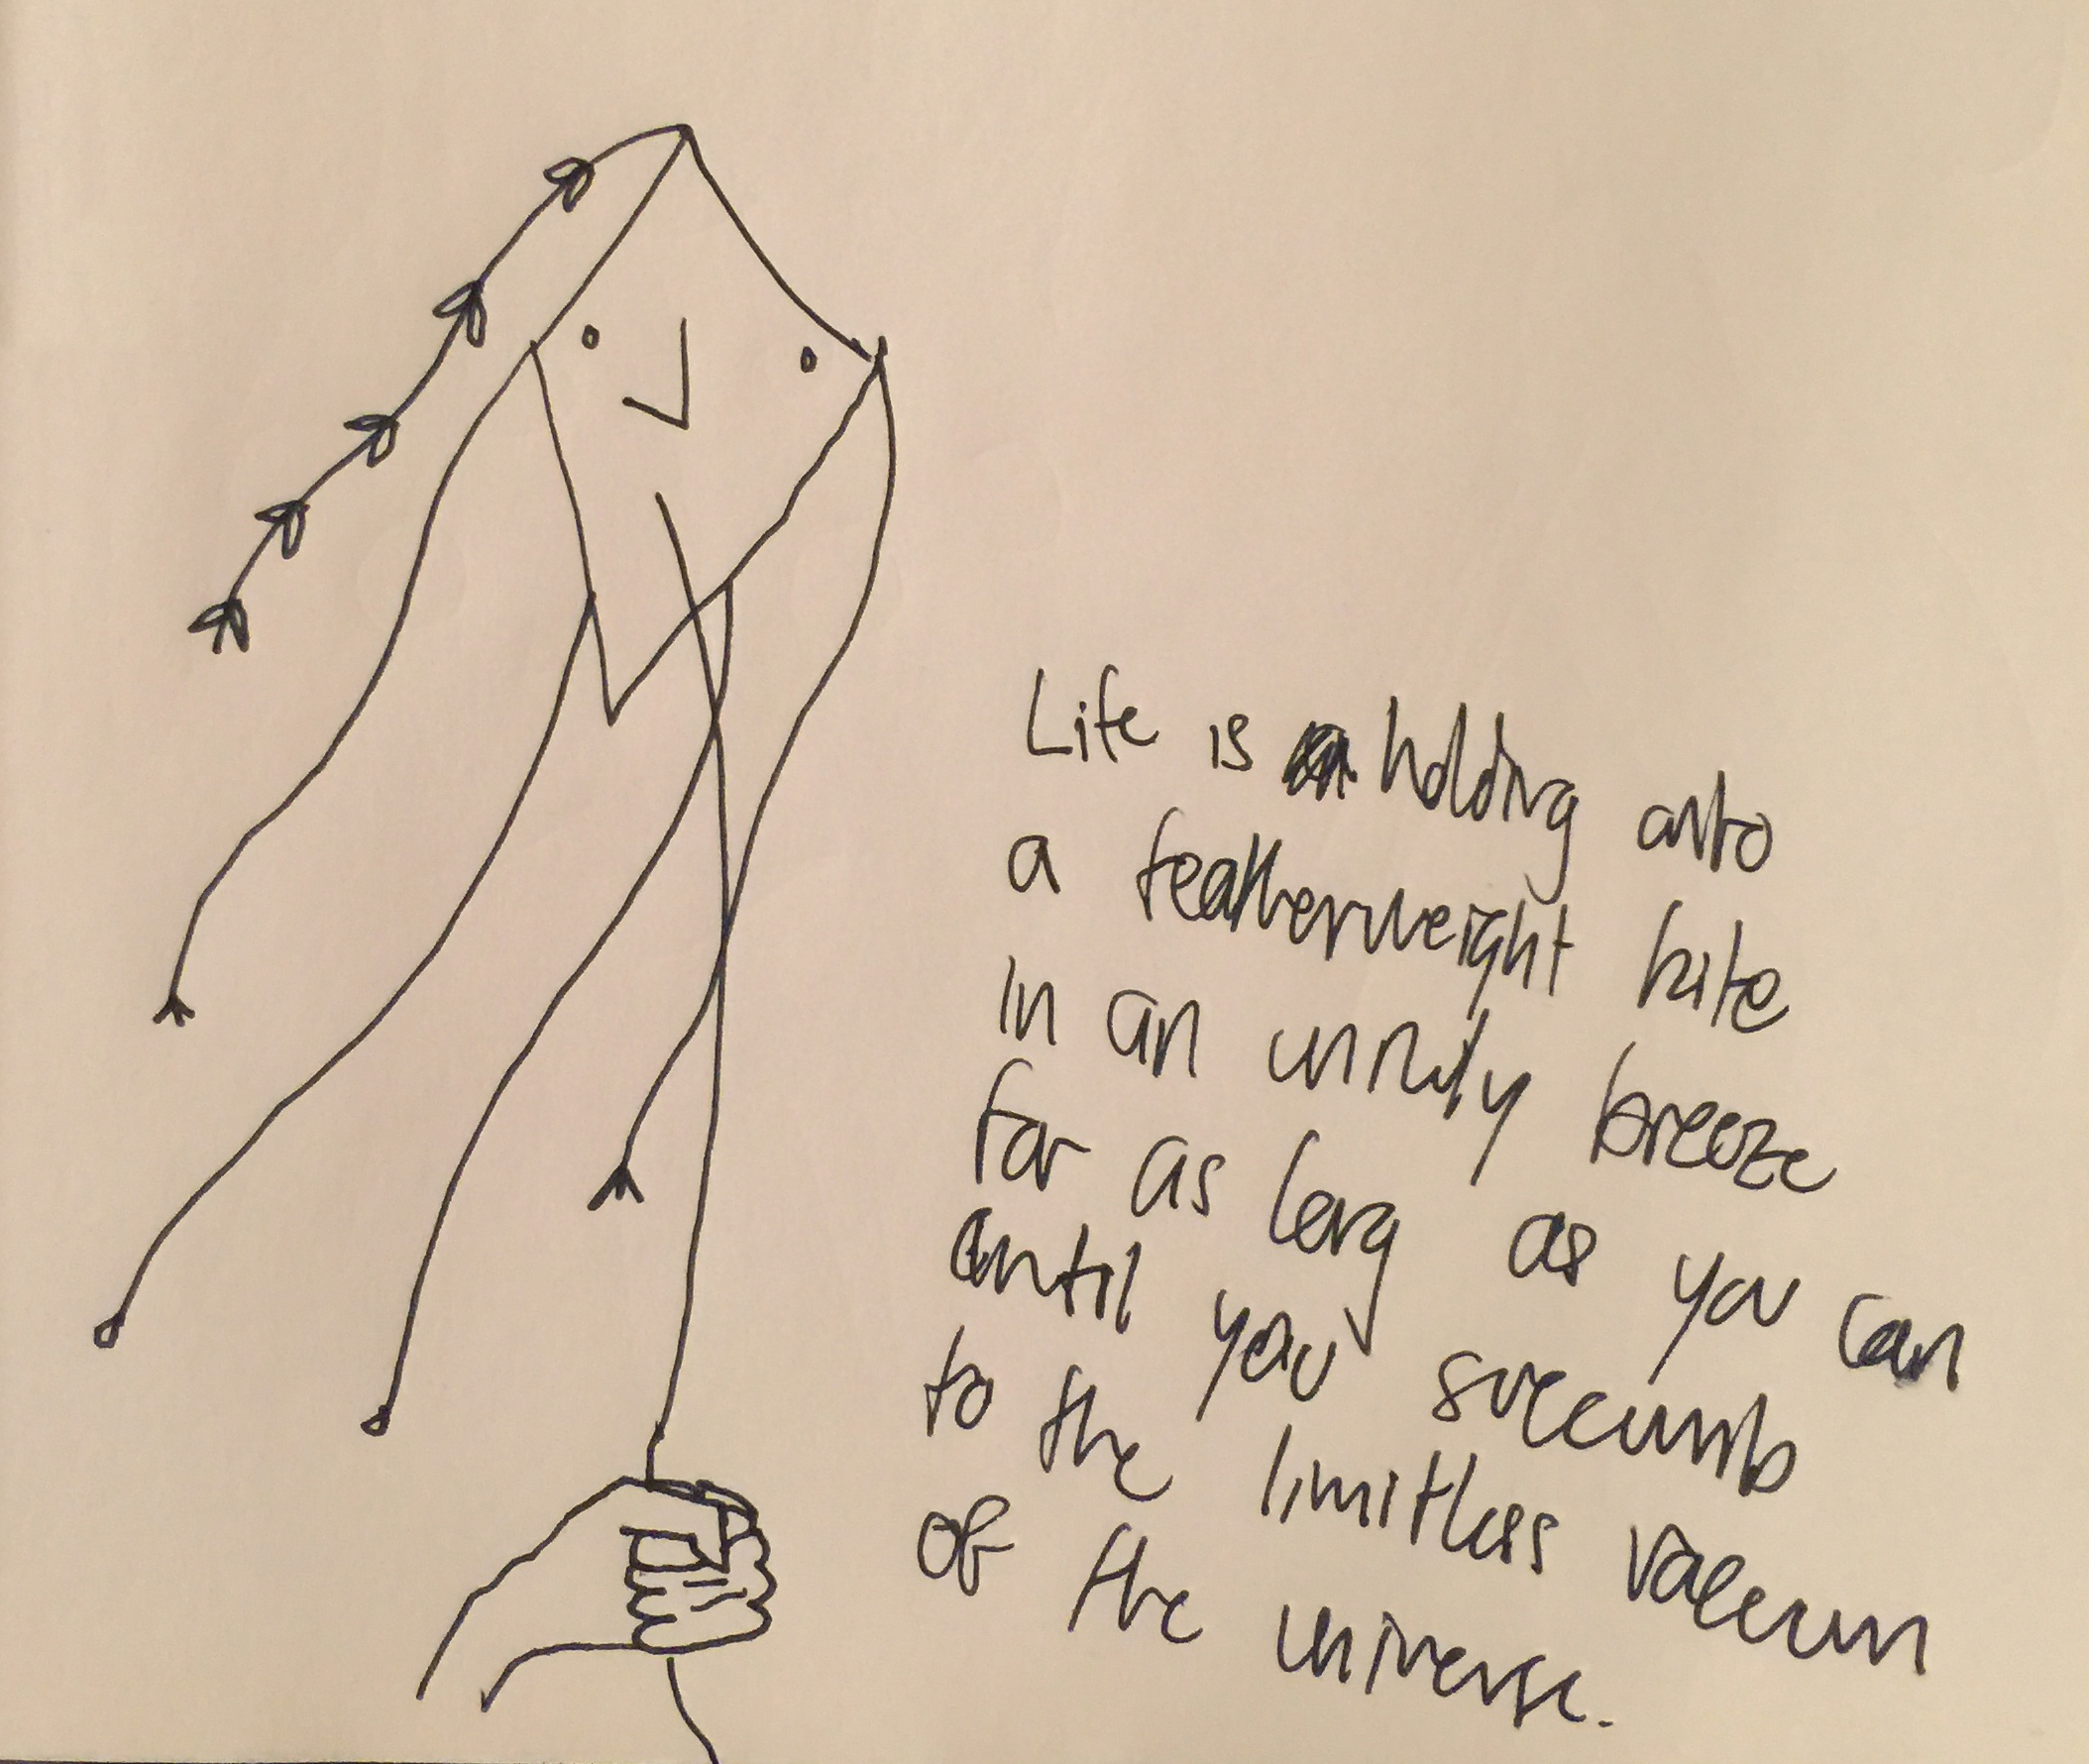 Life is holding onto
a featherweight kite
in an unruly breeze
for as long as you can
until you succumb
to the limitless vacuum
of the universe.